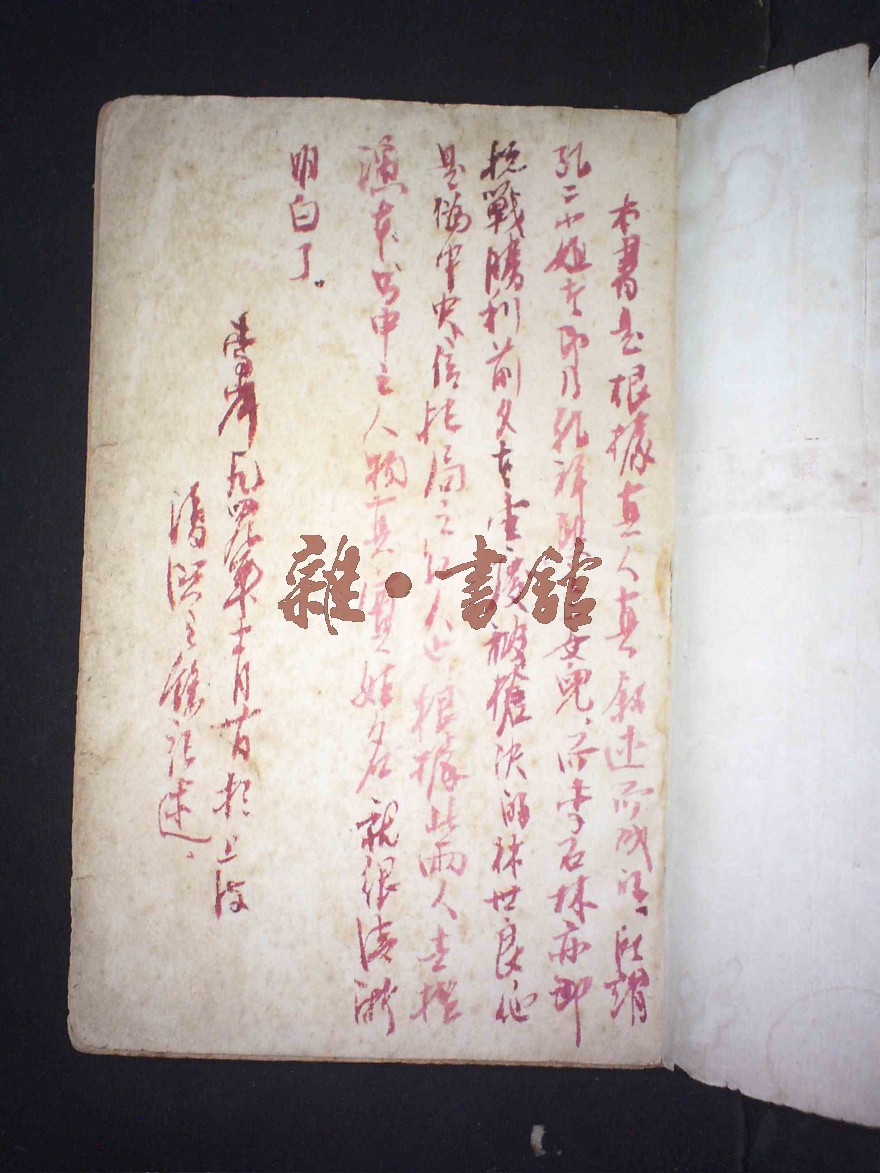 本書是根據真人真敘述而成的，所謂
孔二小姐者即乃孔祥熙女兒，而李石林亦即
抗戰勝利前夕在重慶被槍決的林世良他
是偽中央信托局之紅人也根據此兩人去推
演本書中之人物真實姓名就很清晰
明白了。
一九四九年十月廿日於上海
讀後之餘記述、
雜·書館